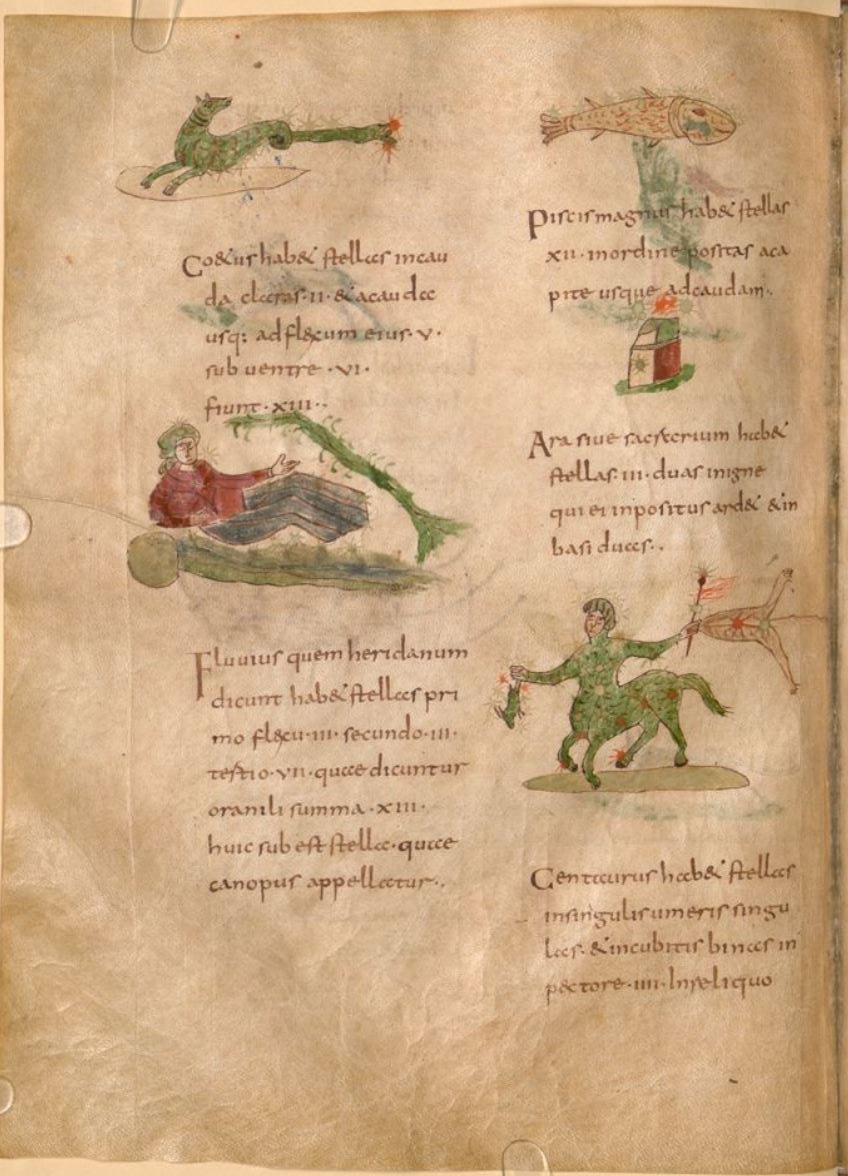 Coetus habet stellas in cau
da claras · II · & a cauda
usq: ad flexum eius · V ·
sub ventre · VI ·
fiunt · XIII ·
Fluvius quem heridanum
dicunt habet stellas pri
mo flexu · III · secundo · III ·
testio · VII · quae dicuntur
oranili summa · XIII ·
huic subest stella · quae
canopus appellatur ·
Piscis magnus habet stellas
XII · in ordine positas a ca
pite usque ad caudam ·
Ara sive sacrarium habet
stellas · III · duas in igne
qui ei inpositus ardet & in
basi duas ·
Centaurus habet stellas
in singulis umeris singu
las · & in cubitis binas in
pectore · IIII · In reliquo